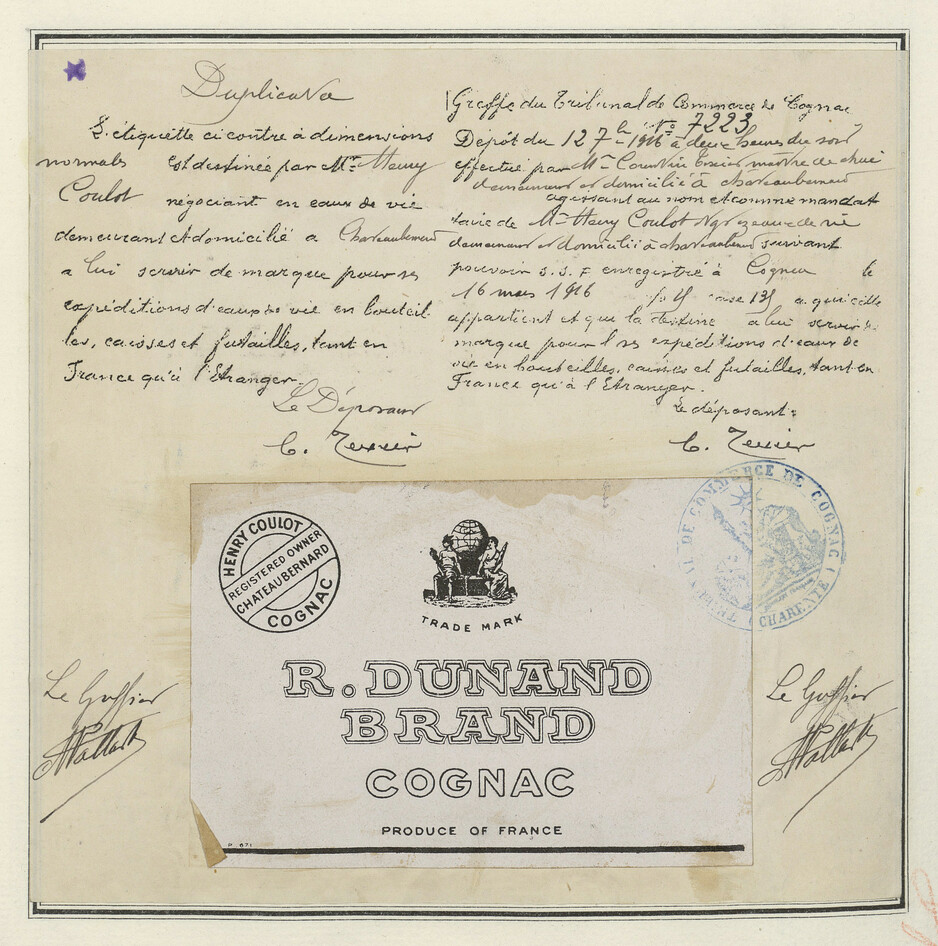 Duplicata
L'étiquette ci contre à dimensions
normales est destinée par Mr Henry
Coulot négociant en eaux de vie
demeurant et domicilié a Chateaubernard
a lui servir de marque pour ses
expéditions d'eaux de vie en bouteil
les, caisses et futailles, tant en
France qu'à l'Etranger.
Le Déposant
C. Texier
Greffe du Tribunal de Commerce de Cognac
No 7223
Dépôt du 1916 à deux heures du soir
effectué par Mr Texier maître de chai
demeurant et domicilié à chateaubernard
agissant au nom et comme mandat
taire de Mr Henry Coulot Ngt en eaux de vie
demeurant et domicilié à chateaubernard suivant
pouvoir s.s.p enregistré à Cognac le
16 mars 1916 case a qui elle
appartient et que la destine a lui servir de
marque pour ses expéditions d'eaux de
vie en bouteilles, caisses et futailles, tant en
France qu'à l'Etranger.
Le déposant:
C. Texier
TRIBUNAL DE COMMERCE DE COGNAC (CHARENTE)
HENRY COULOT
REGISTERED OWNER
CHATEAUBERNARD
COGNAC
TRADE MARK
R. DUNAND
BRAND
COGNAC
PRODUCE OF FRANCE
P. 671
Le Greffier
Le Greffier